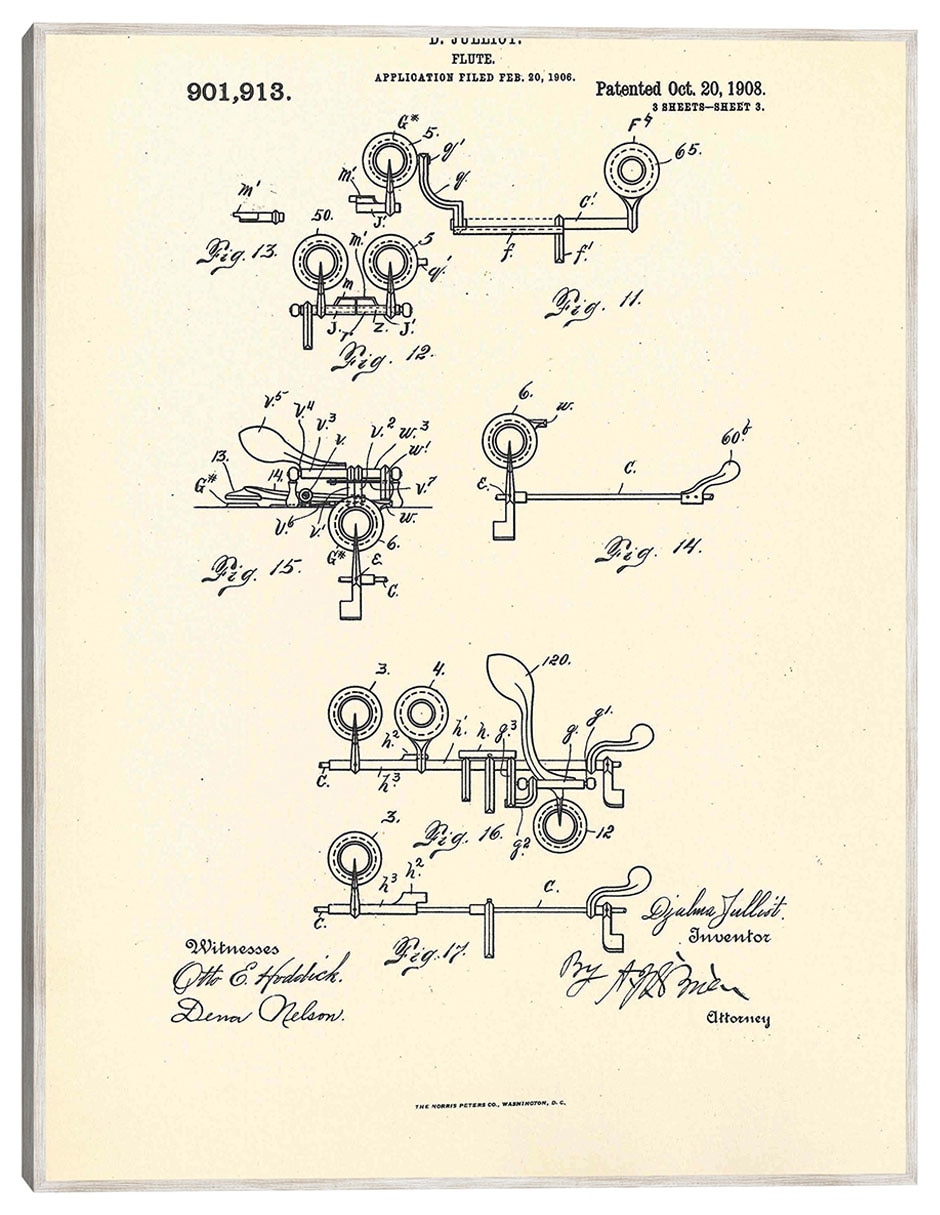 D. JULLIOT.
FLUTE.
APPLICATION FILED FEB. 20, 1906.
901,913.
Patented Oct. 20, 1908.
3 SHEETS—SHEET 3.
G* 5. g' g. m' J.' F# 65. C' f. f'
m'
Fig. 13.
50. m' 5 g' m J. r z. J.'
Fig. 11.
Fig. 12.
v.5 v.4 v.3 v. v.2 w.3 w' v.7 w. 13. 14. G# v.6 v.' G* 6. E. C.
6. w. E. C. 60b
Fig. 14.
Fig. 15.
3. 4. 120. h.2 h' h. g.3 g. g1 C. h.3 g2 12
Fig. 16.
3. h3 h.2 C. C.
Fig. 17.
Djalma Julliot.
Inventor
Witnesses
Otto E. Hoddick.
Dena Nelson.
By
Attorney
THE NORRIS PETERS CO., WASHINGTON, D. C.